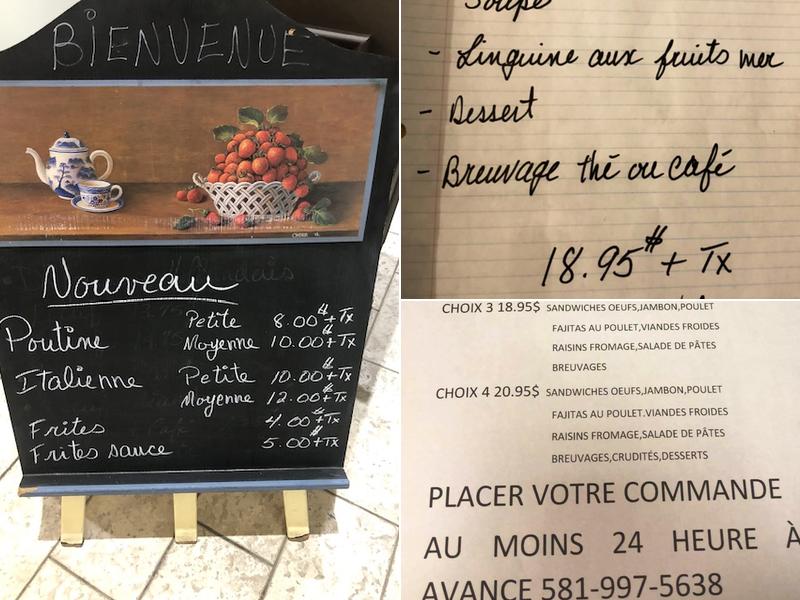 BIENVENUE
Nouveau
Poutine Petite 8.00$+Tx
Moyenne 10.00$+Tx
Italienne Petite 10.00$+Tx
Moyenne 12.00$+Tx
Frites 4.00$+Tx
Frites sauce 5.00$+Tx
Soupe
- Linguine aux fruits mer
- Dessert
- Breuvage thé ou café
18.95$+ Tx
CHOIX 3 18.95$ SANDWICHES OEUFS,JAMBON,POULET
FAJITAS AU POULET,VIANDES FROIDES
RAISINS FROMAGE,SALADE DE PÂTES
BREUVAGES
CHOIX 4 20.95$ SANDWICHES OEUFS,JAMBON,POULET
FAJITAS AU POULET.VIANDES FROIDES
RAISINS FROMAGE,SALADE DE PÂTES
BREUVAGES,CRUDITÉS,DESSERTS
PLACER VOTRE COMMANDE
AU MOINS 24 HEURE À
AVANCE 581-997-5638